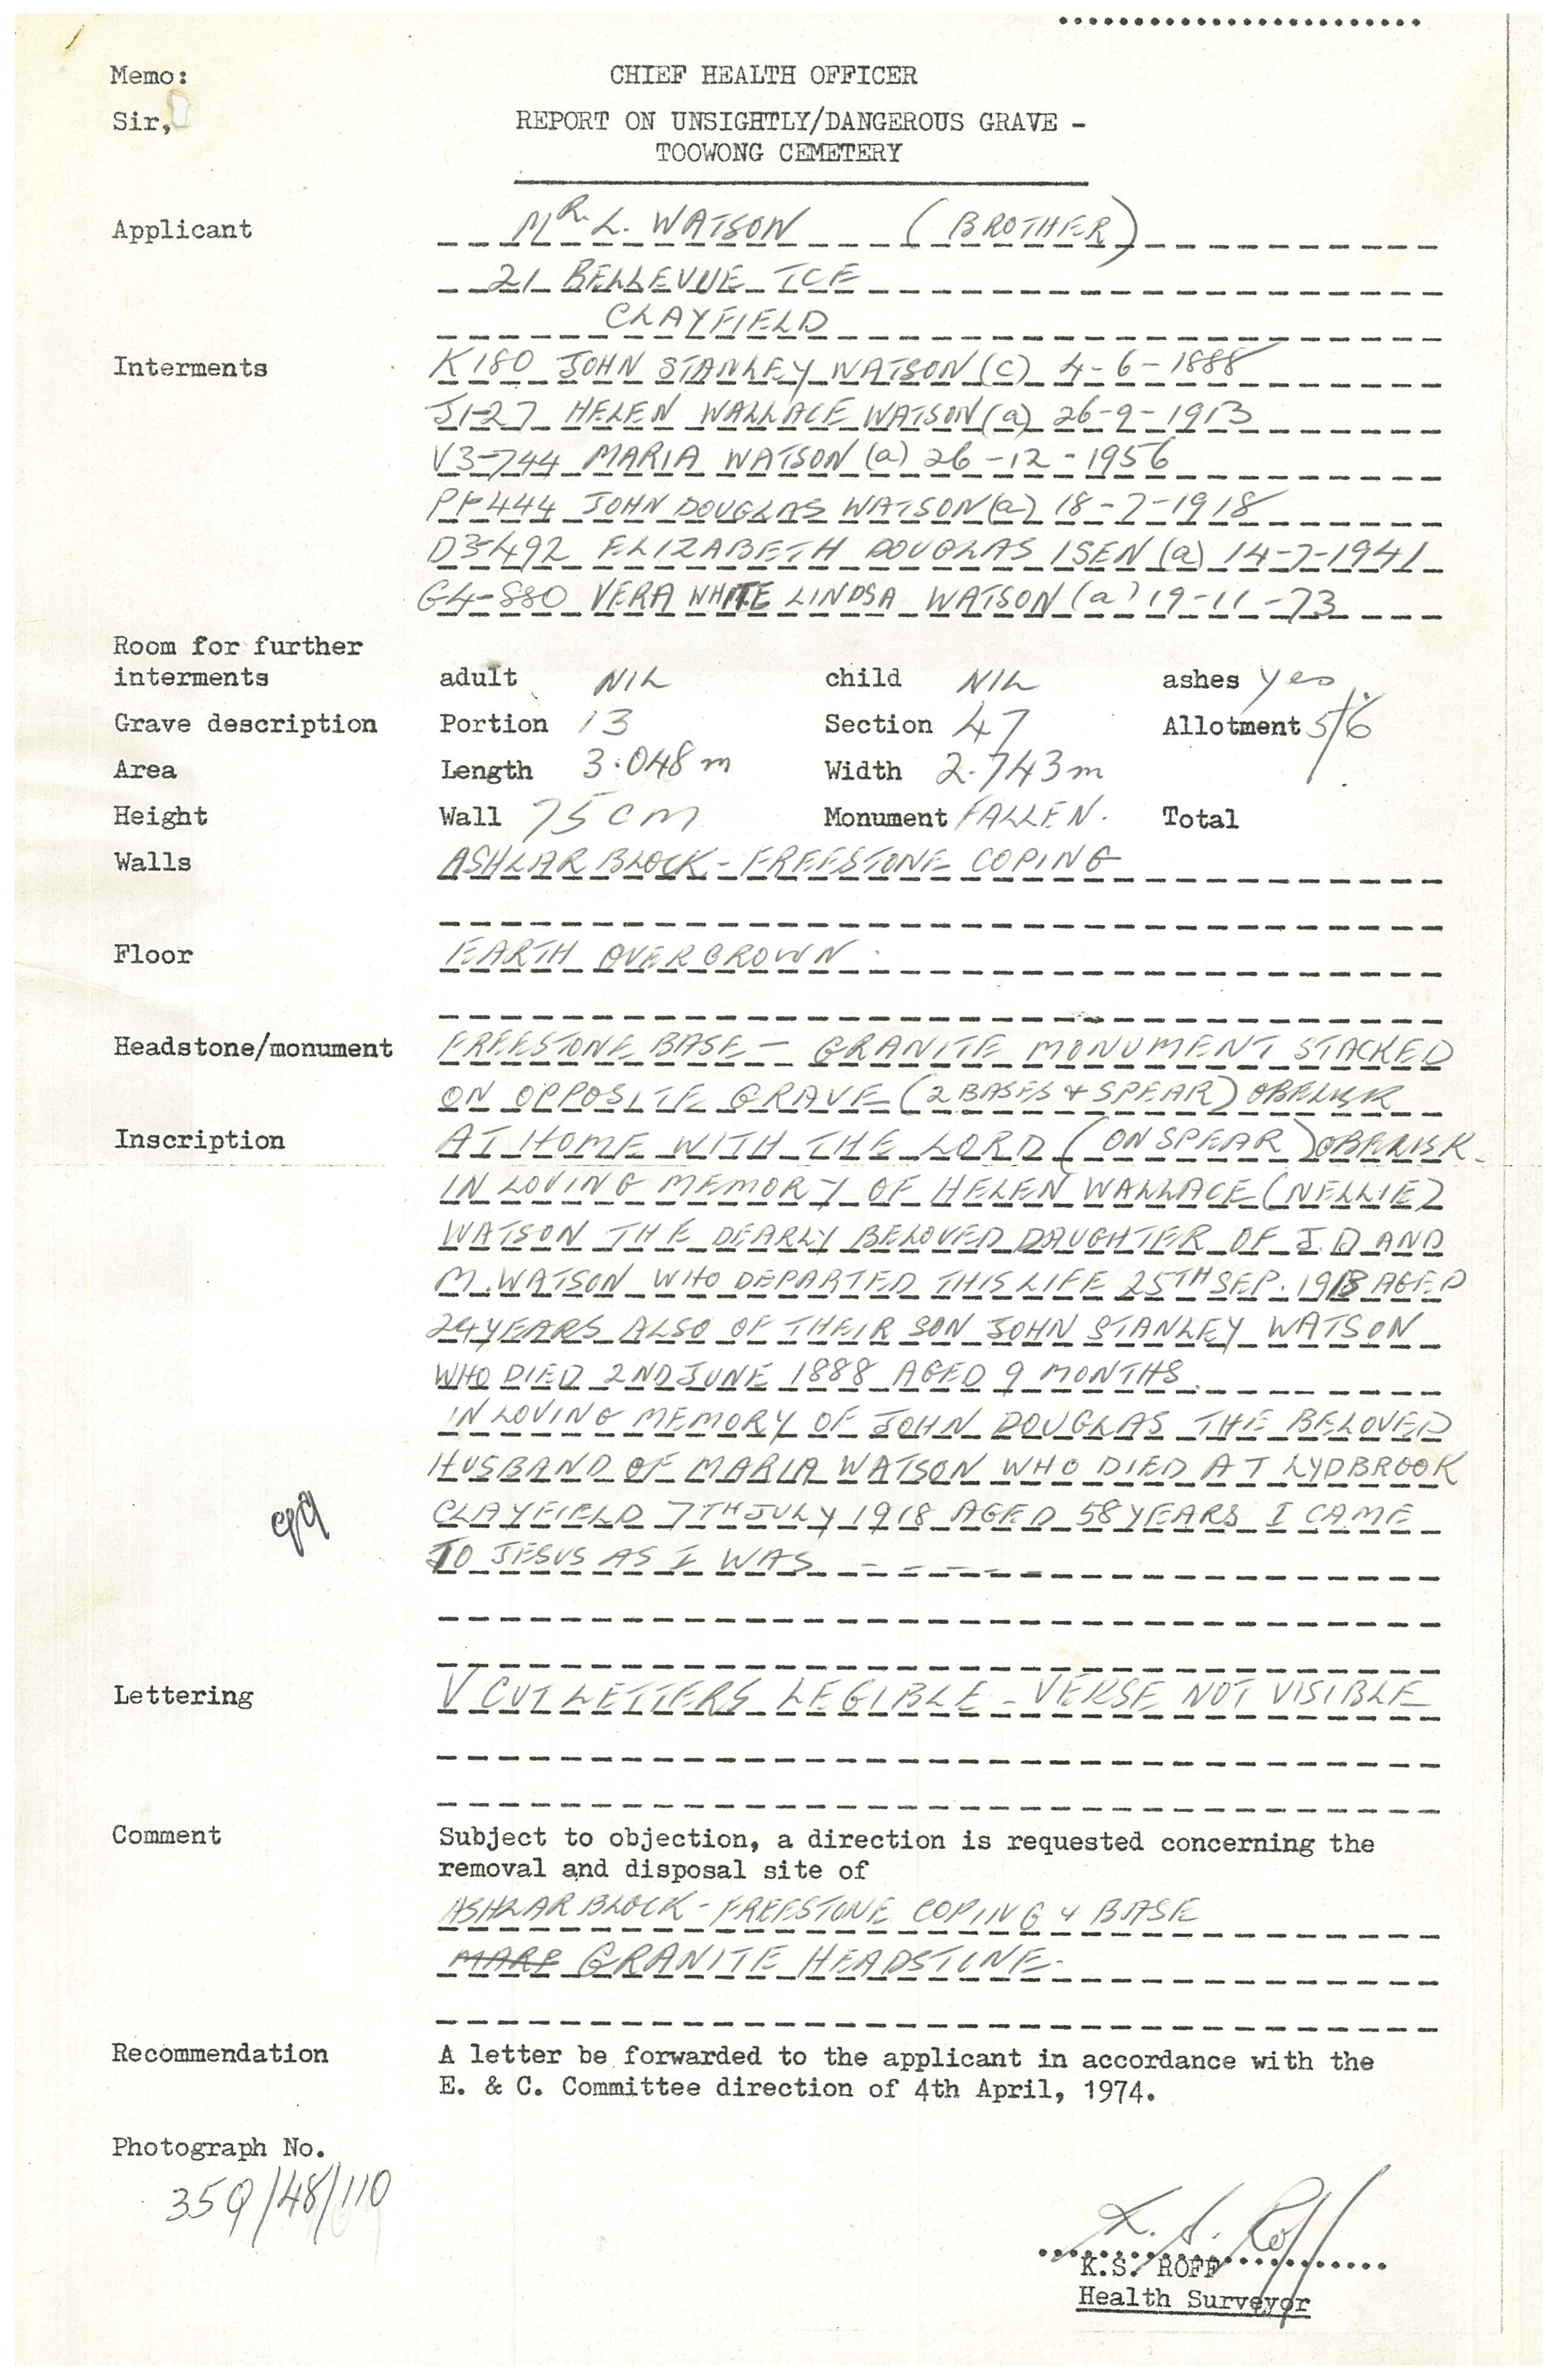 Memo: CHIEF HEALTH OFFICER
Sir, REPORT ON UNSIGHTLY/DANGEROUS GRAVE -
TOOWONG CEMETERY
Applicant MR. L. WATSON (BROTHER)
21 BELLEVUE TCE
CLAYFIELD
Interments K180 JOHN STANLEY WATSON (c) 4-6-1888
J1-27 HELEN WALLACE WATSON (a) 26-9-1913
V3-744 MARIA WATSON (a) 26-12-1956
444 JOHN DOUGLAS WATSON (a) 18-7-1918
D3-492 ELIZABETH DOUGLAS ISEN (a) 14-7-1941
G4-880 VERA WHITE LINDSA WATSON (a) 19-11-73
Room for further
interments adult NIL child NIL ashes yes
Grave description Portion 13 Section 47 Allotment 5/6
Area Length 3.048m Width 2.743m
Height Wall 75cm Monument FALLEN. Total
Walls ASHLAR BLOCK - FREESTONE COPING
Floor EARTH OVERGROWN
Headstone/monument FREESTONE BASE - GRANITE MONUMENT STACKED
ON OPPOSITE GRAVE (2 BASES & SPEAR) OBELISK
Inscription AT HOME WITH THE LORD (ON SPEAR) OBELISK
IN LOVING MEMORY OF HELEN WALLACE (NELLIE)
WATSON THE DEARLY BELOVED DAUGHTER OF J.D AND
M. WATSON WHO DEPARTED THIS LIFE 25TH SEP. 1913 AGED
24 YEARS ALSO OF THEIR SON JOHN STANLEY WATSON
WHO DIED 2ND JUNE 1888 AGED 9 MONTHS
IN LOVING MEMORY OF JOHN DOUGLAS THE BELOVED
HUSBAND OF MARIA WATSON WHO DIED AT LYDBROOK
CLAYFIELD 7TH JULY 1918 AGED 58 YEARS I CAME
TO JESUS AS I WAS ------
Lettering V CUT LETTERS LEGIBLE - VERSE NOT VISIBLE
Comment Subject to objection, a direction is requested concerning the
removal and disposal site of
ASHLAR BLOCK - FREESTONE COPING & BASE
MARB GRANITE HEADSTONE.
Recommendation A letter be forwarded to the applicant in accordance with the
E. & C. Committee direction of 4th April, 1974.
Photograph No.
35Q/48/110
K. S. Roff
K.S. ROFF
Health Surveyor